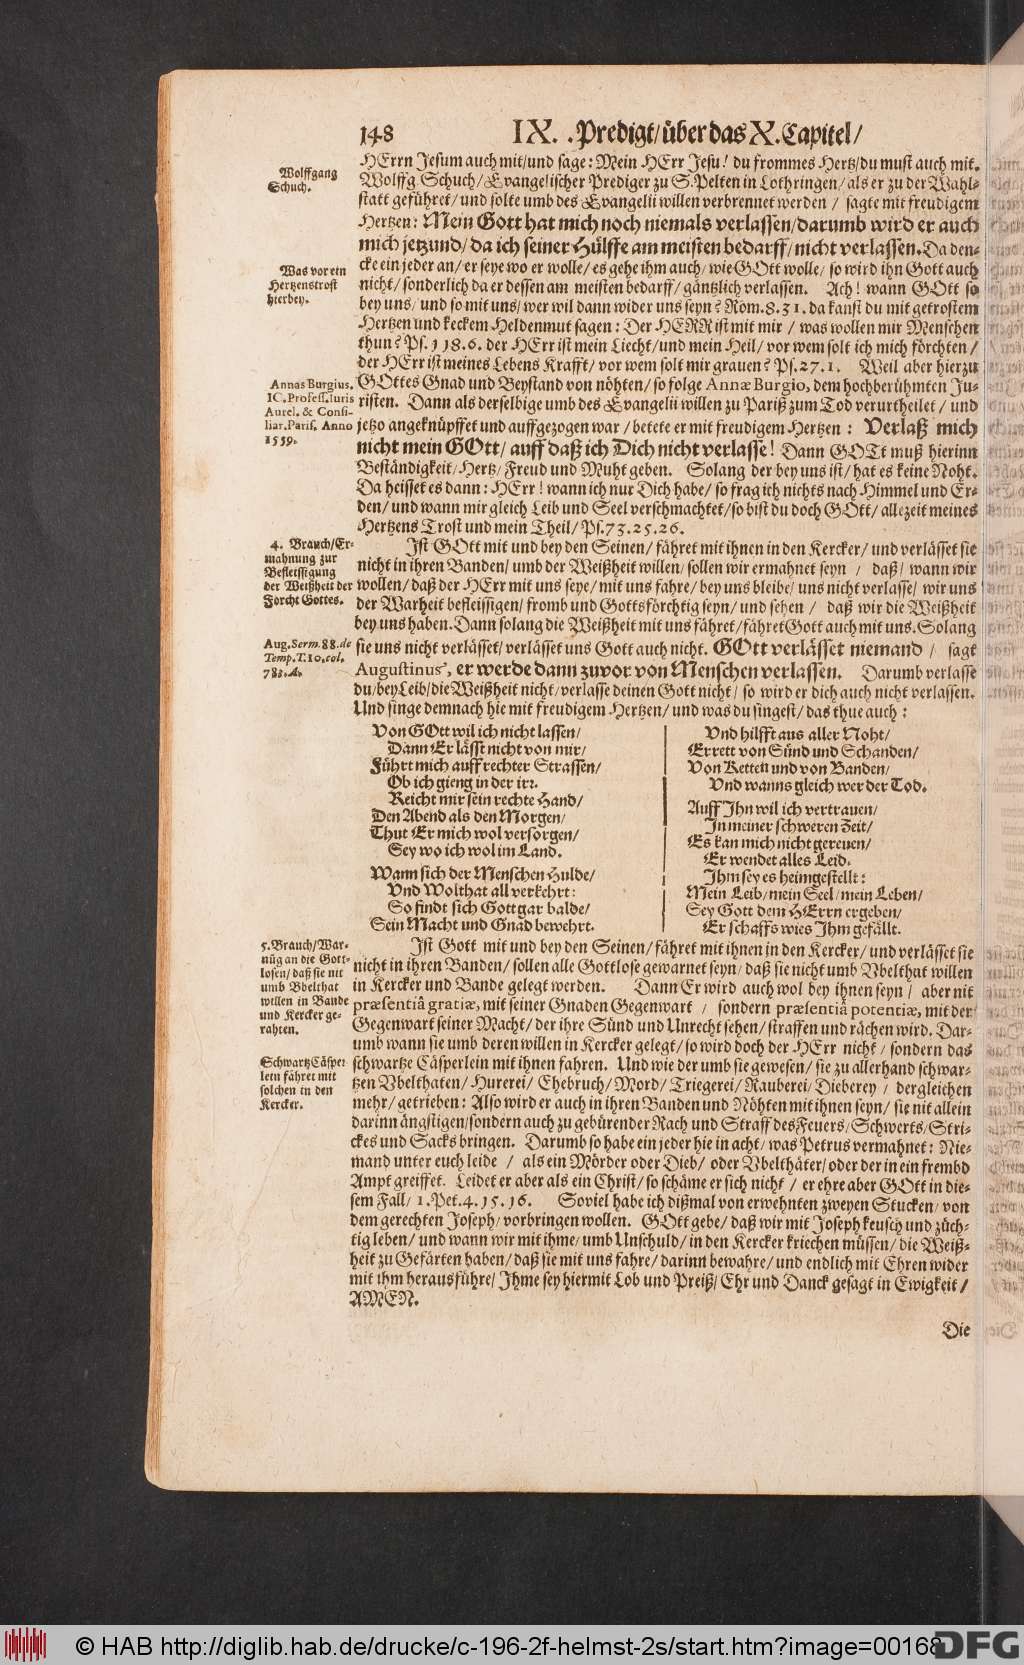 148 IX. Predigt/ über das X. Capitel/
Wolffgang
Schuch.
HErrn Jesum auch mit/ und sage: Mein HErr Jesu! du frommes Hertz/ du must auch mit.
Wolffg. Schuch/ Evangelischer Prediger zu S. Pelten in Lothringen/ als er zu der Wahl-
statt geführet/ und solte umb des Evangelii willen verbrennet werden / sagte mit freudigem
Hertzen: Mein Gott hat mich noch niemals verlassen/ darumb wird er auch
mich jetzund/ da ich seiner Hülffe am meisten bedarff/ nicht verlassen. Da den-
Was vor ein
Hertzenstrost
hierbey.
cke ein jeder an/ er seye wo er wolle/ es gehe ihm auch/ wie GOtt wolle/ so wird ihn Gott auch
nicht/ sonderlich da er dessen am meisten bedarff/ gäntzlich verlassen. Ach! wann GOtt so
bey uns/ und so mit uns/ wer wil dann wider uns seyn? Röm. 8. 31. da kanst du mit getrostem
Hertzen und keckem Heldenmut sagen: Der HERR ist mit mir / was wollen mir Menschen
thun? Ps. 118. 6. der HErr ist mein Liecht/ und mein Heil/ vor wem solt ich mich förchten /
der HErr ist meines Lebens Krafft/ vor wem solt mir grauen? Ps. 27. 1. Weil aber hierzu
Annas Burgius,
IC. Profess. Iuris
Aurel. & Consi-
liar. Paris. Anno
1559.
GOttes Gnad und Beystand von nöhten/ so folge Annæ Burgio, dem hochberühmten Ju-
risten. Dann als derselbige umb des Evangelii willen zu Pariß zum Tod verurtheilet / und
jetzo angeknüpffet und auffgezogen war / betete er mit freudigem Hertzen: Verlaß mich
nicht mein GOtt/ auff daß ich Dich nicht verlasse! Dann GOTt muß hierinn
Beständigkeit/ Hertz/ Freud und Muht geben. Solang der bey uns ist/ hat es keine Noht.
Da heisset es dann: HErr! wann ich nur Dich habe/ so frag ich nichts nach Himmel und Er-
den/ und wann mir gleich Leib und Seel verschmachtet/ so bist du doch GOtt/ allezeit meines
Hertzens Trost und mein Theil/ Ps. 73. 25. 26.
4. Brauch/ Er-
mahnung zur
Befleissigung
der Weißheit der
Forcht Gottes.
Ist GOtt mit und bey den Seinen/ fähret mit ihnen in den Kercker/ und verlässet sie
nicht in ihren Banden/ umb der Weißheit willen/ sollen wir ermahnet seyn / daß/ wann wir
wollen/ daß der HErr mit uns seye/ mit uns fahre/ bey uns bleibe/ uns nicht verlasse/ wir uns
der Warheit befleissigen/ fromb und Gottsförchtig seyn/ und sehen / daß wir die Weißheit
bey uns haben. Dann solang die Weißheit mit uns fähret/ fähret Gott auch mit uns. Solang
Aug. Serm. 88. de
Temp. T. 10. col.
783. A.
sie uns nicht verlässet/ verlässet uns Gott auch nicht. GOtt verlässet niemand / sagt
Augustinus, er werde dann zuvor von Menschen verlassen. Darumb verlasse
du/ bey Leib/ die Weißheit nicht/ verlasse deinen Gott nicht/ so wird er dich auch nicht verlassen.
Und singe demnach hie mit freudigem Hertzen/ und was du singest/ das thue auch:
Von GOtt wil ich nicht lassen/
Dann Er lässt nicht von mir/
Führt mich auff rechter Strassen/
Ob ich gieng in der irr.
Reicht mir sein rechte Hand/
Den Abend als den Morgen/
Thut Er mich wol versorgen/
Sey wo ich wol im Land.
Wann sich der Menschen Hulde/
Vnd Wolthat all verkehrt:
So findt sich Gott gar balde/
Sein Macht und Gnad bewehrt.
Vnd hilfft aus aller Noht/
Errett von Sünd und Schanden/
Von Ketten und von Banden/
Vnd wanns gleich wer der Tod.
Auff Ihn wil ich vertrauen/
In meiner schweren Zeit/
Es kan mich nicht gereuen/
Er wendet alles Leid.
Ihm sey es heimgestellt:
Mein Leib/ mein Seel/ mein Leben/
Sey Gott dem HErrn ergeben/
Er schaffs wies Ihm gefällt.
5. Brauch/ War-
nũg an die Gott-
losen/ daß sie nit
umb Vbelthat
willen in Bande
und Kercker ge-
rahten.
Ist Gott mit und bey den Seinen/ fähret mit ihnen in den Kercker/ und verlässet sie
nicht in ihren Banden/ sollen alle Gottlose gewarnet seyn/ daß sie nicht umb Vbelthat willen
in Kercker und Bande gelegt werden. Dann Er wird auch wol bey ihnen seyn / aber nit
præsentiâ gratiæ, mit seiner Gnaden Gegenwart / sondern præsentiâ potentiæ, mit der
Gegenwart seiner Macht/ der ihre Sünd und Unrecht sehen/ straffen und rächen wird. Dar-
umb wann sie umb deren willen in Kercker gelegt/ so wird doch der HErr nicht / sondern das
Schwartz Cäsper-
lein fähret mit
solchen in den
Kercker.
schwartze Cäsperlein mit ihnen fahren. Und wie der umb sie gewesen/ sie zu allerhand schwar-
tzen Vbelthaten/ Hurerei/ Ehebruch/ Mord/ Triegerei/ Rauberei/ Dieberey / dergleichen
mehr/ getrieben: Also wird er auch in ihren Banden und Nöhten mit ihnen seyn/ sie nit allein
darinn ängstigen/ sondern auch zu gebürender Rach und Straff des Feuers/ Schwerts/ Stri-
ckes und Sacks bringen. Darumb so habe ein jeder hie in acht/ was Petrus vermahnet: Nie-
mand unter euch leide / als ein Mörder oder Dieb/ oder Vbelthäter/ oder der in ein frembd
Ampt greiffet. Leidet er aber als ein Christ/ so schäme er sich nicht / er ehre aber GOtt in die-
sem Fall/ 1. Pet. 4. 15. 16. Soviel habe ich dißmal von erwehnten zweyen Stucken/ von
dem gerechten Joseph/ vorbringen wollen. GOtt gebe/ daß wir mit Joseph keusch und züch-
tig leben/ und wann wir mit ihme/ umb Unschuld/ in den Kercker kriechen müssen/ die Weiß-
heit zu Gefärten haben/ daß sie mit uns fahre/ darinn bewahre/ und endlich mit Ehren wider
mit ihm herausführe/ Ihme sey hiermit Lob und Preiß/ Ehr und Danck gesagt in Ewigkeit/
AMEN.
Die
© HAB http://diglib.hab.de/drucke/c-196-2f-helmst-2s/start.htm?image=00168
DFG